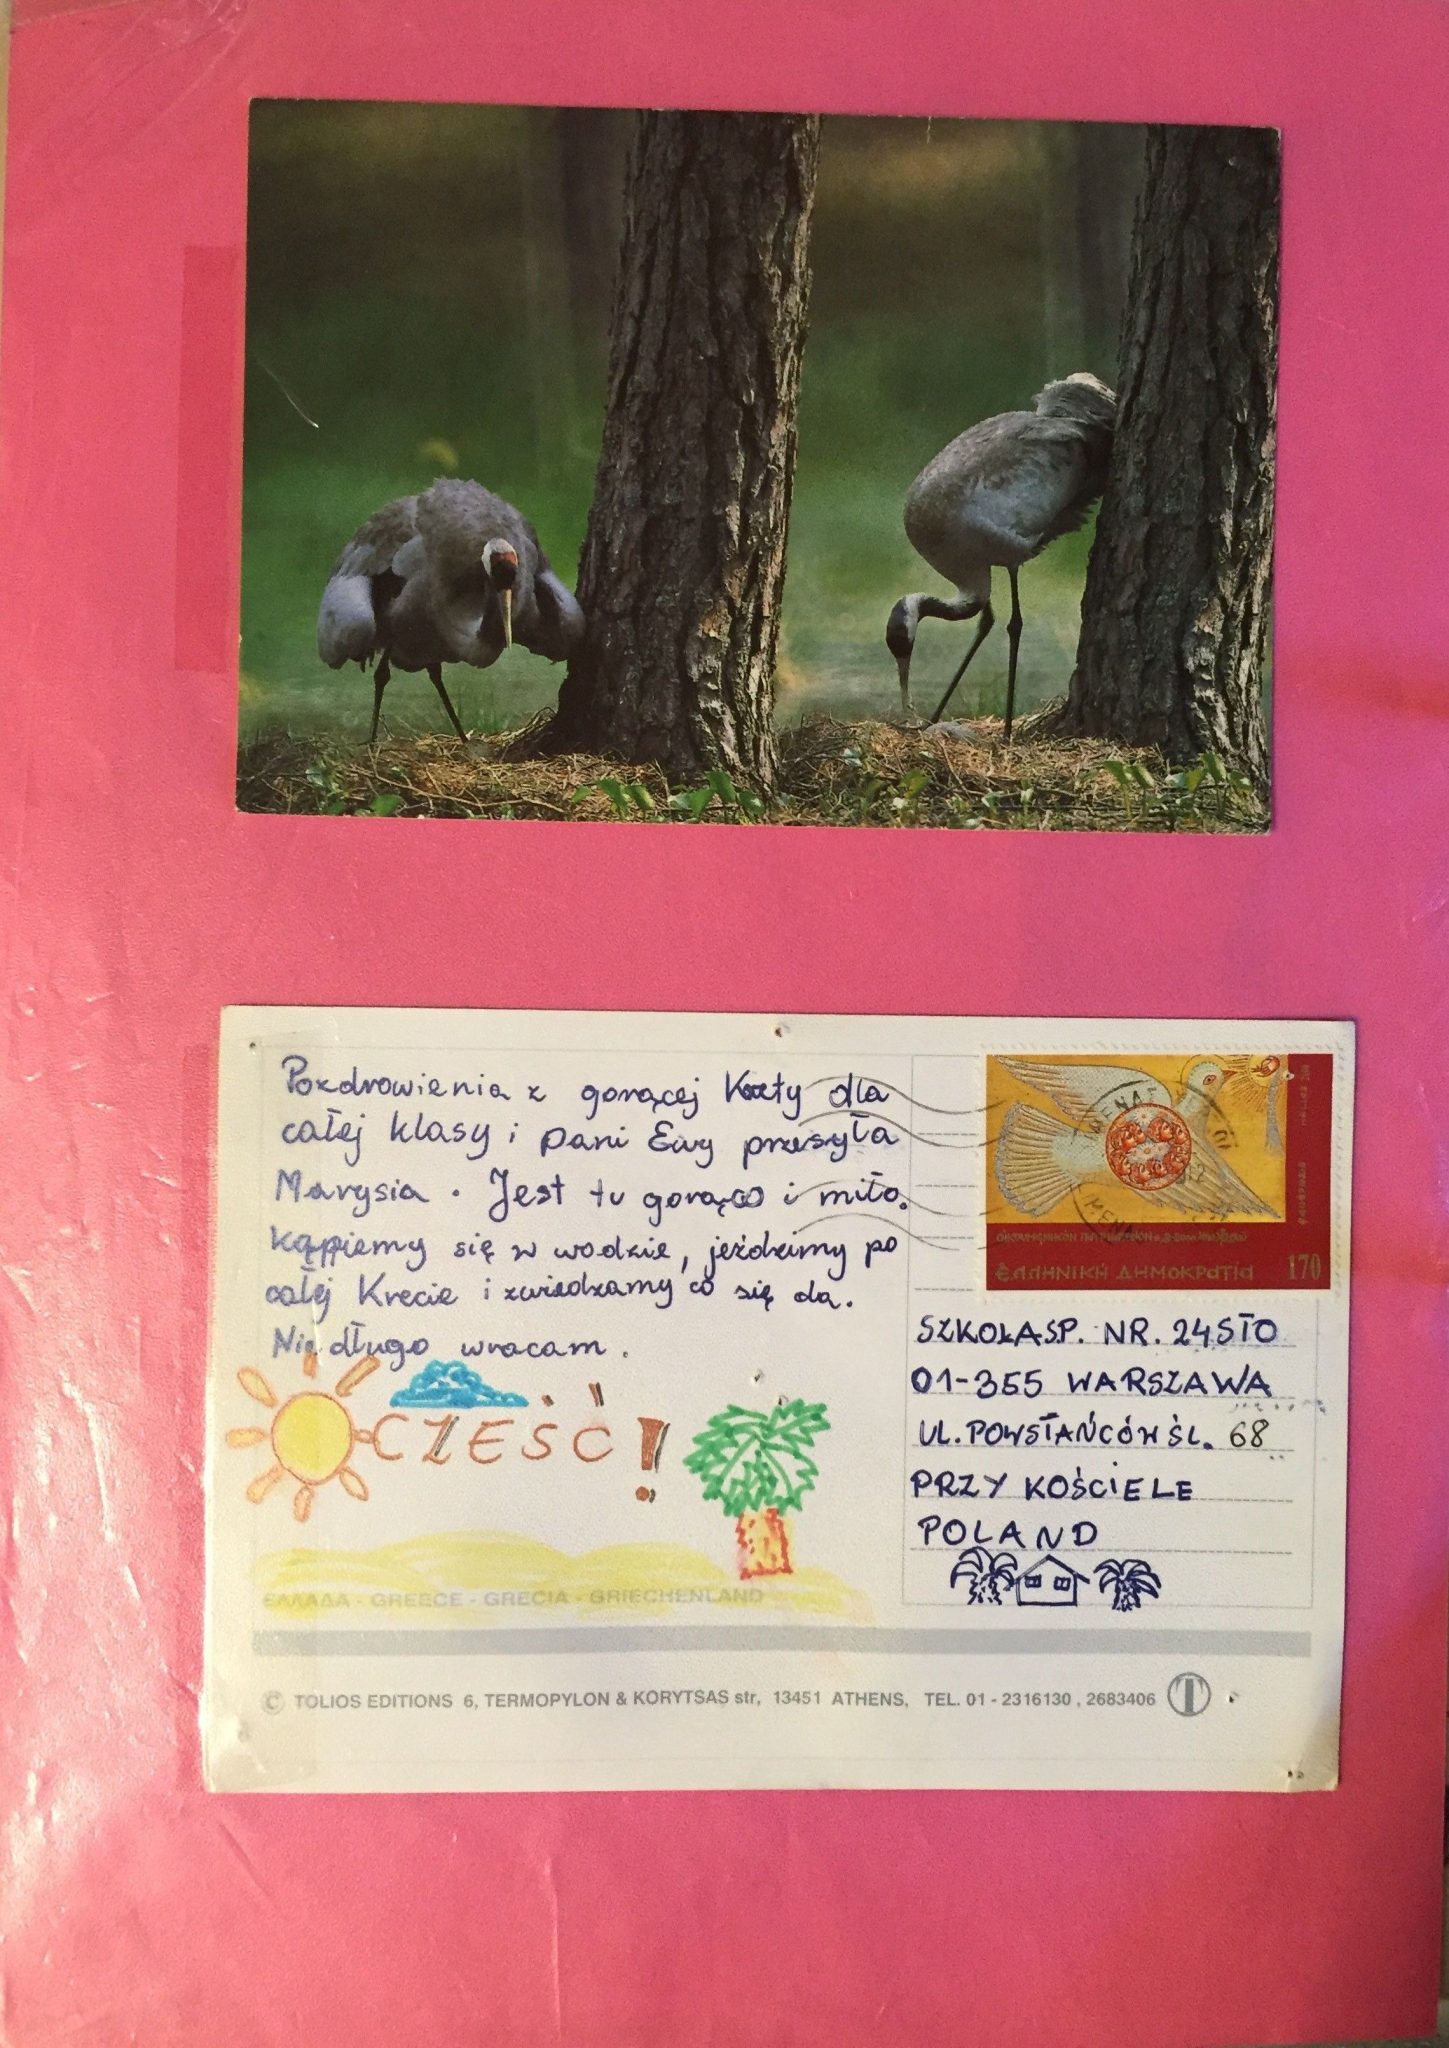 Pozdrowienia z gorącej Krety dla
całej klasy i pani Ewy przesyła
Marysia. Jest tu gorąco i miło.
Kąpiemy się w wodzie, jeździmy po
całej Krecie i zwiedzamy co się da.
Nie długo wracam.
CZEŚĆ!
ΕΛΛΑΔΑ - GREECE - GRECIA - GRIECHENLAND
ΕΛΛΗΝΙΚΗ ΔΗΜΟΚΡΑΤΙΑ 170
SZKOŁA SP. NR. 24 STO
01-355 WARSZAWA
UL. POWSTAŃCÓW ŚL. 68
PRZY KOŚCIELE
POLAND
© TOLIOS EDITIONS 6, TERMOPYLON & KORYTSAS str, 13451 ATHENS, TEL. 01 - 2316130, 2683406 T